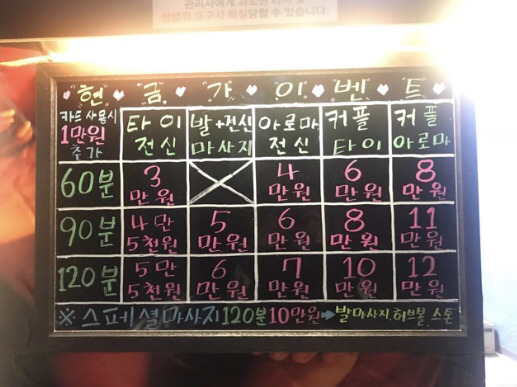 관리사에게 과도한 터치 및
성행위 요구시 퇴실당할 수 있습니다.
현 금 가 이 벤 트
카드 사용시 1만원 추가 타이 전신 발+전신 마사지 아로마 전신 커플 타이 커플 아로마
60분 3만원 4만원 6만원 8만원
90분 4만5천원 5만원 6만원 8만원 11만원
120분 5만5천원 6만원 7만원 10만원 12만원
※ 스페셜마사지 120분 10만원 ➡ 발마사지 허브볼 스톤